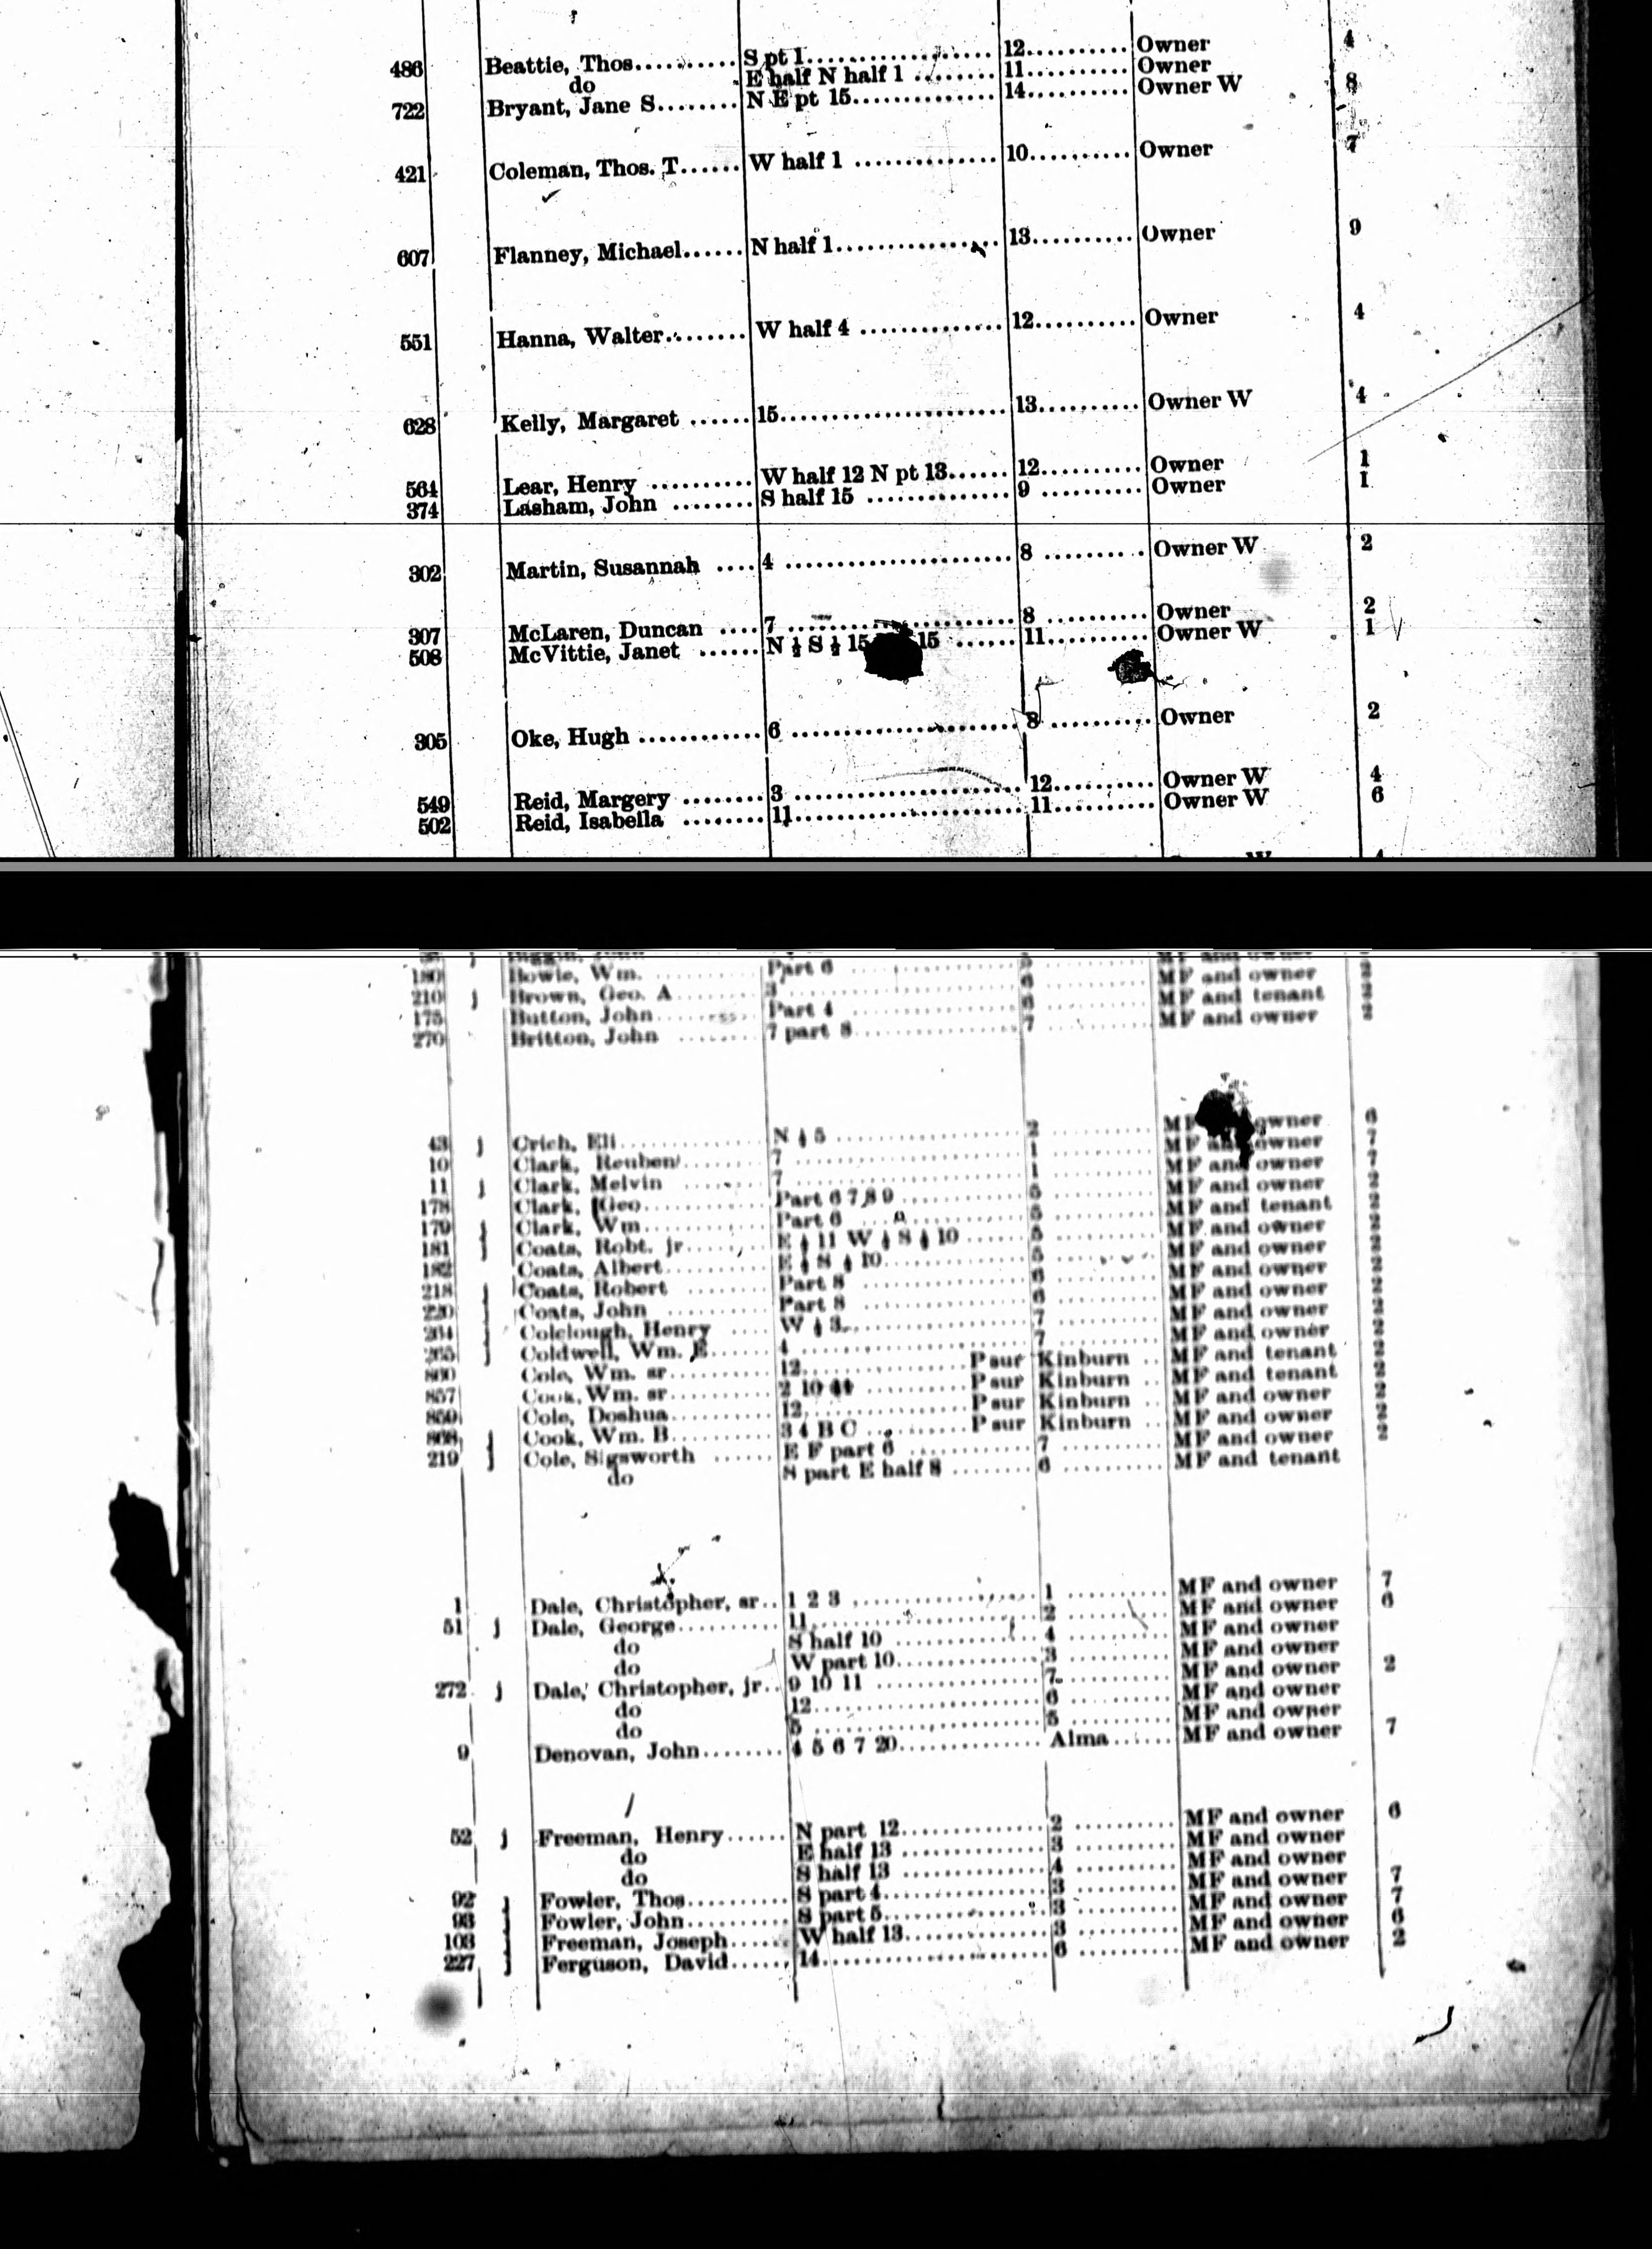 486 Beattie, Thos.......... S pt 1.................. 12.......... Owner 4
do E half N half 1 ........ 11.......... Owner
722 Bryant, Jane S........ N E pt 15.............. 14.......... Owner W 8
421 Coleman, Thos. T...... W half 1 .............. 10.......... Owner 7
607 Flanney, Michael...... N half 1................ 13.......... Owner 9
551 Hanna, Walter........ W half 4 .............. 12.......... Owner 4
628 Kelly, Margaret ...... 15...................... 13.......... Owner W 4
564 Lear, Henry .......... W half 12 N pt 13...... 12.......... Owner 1
374 Lasham, John ........ S half 15 .............. 9 .......... Owner 1
302 Martin, Susannah .... 4 ...................... 8 .......... Owner W 2
307 McLaren, Duncan .... 7 ...................... 8 .......... Owner 2
508 McVittie, Janet ...... N ½ S ½ 15 15 ...... 11.......... Owner W 1
305 Oke, Hugh ............ 6 ...................... 8 .......... Owner 2
549 Reid, Margery ........ 3 ...................... 12.......... Owner W 4
502 Reid, Isabella ........ 11...................... 11.......... Owner W 6
180 Bowie, Wm. .......... Part 6 .......... MF and owner 2
210 j Brown, Geo. A........ 3 .......... 6 .......... MF and tenant 2
175 Button, John.......... Part 4 .......... 6 .......... MF and owner 2
270 Britton, John ........ 7 part 8.......... 7 ..........
43 j Crich, Eli............ N ½ 5 .......... 2 .......... MF owner 6
10 Clark, Reuben........ 7 .......... 1 .......... MF and owner 7
11 j Clark, Melvin ........ 7 .......... 1 .......... MF and owner 7
178 Clark, Geo.......... Part 6 7 8 9 .......... 5 .......... MF and owner 2
179 j Clark, Wm.......... Part 6 .......... 5 .......... MF and tenant 2
181 j Coats, Robt. jr........ E ½ 11 W ½ S ½ 10...... 5 .......... MF and owner 2
182 Coats, Albert.......... E ½ S ½ 10.......... 5 .......... MF and owner 2
218 j Coats, Robert ........ Part 8 .......... 6 .......... MF and owner 2
220 j Coats, John .......... Part 8 .......... 6 .......... MF and owner 2
264 j Colclough, Henry .... W ½ 3.......... 7 .......... MF and owner 2
265 j Coldwell, Wm. E...... 4 .......... 7 .......... MF and owner 2
860 Cole, Wm. sr.......... 12.......... P sur Kinburn .. MF and tenant 2
857 Cook, Wm. sr.......... 2 10 .......... P sur Kinburn .. MF and tenant 2
859 Cole, Doshua.......... 12.......... P sur Kinburn .. MF and owner 2
868 j Cook, Wm. B.......... 3 4 B C .......... P sur Kinburn .. MF and owner 2
219 j Cole, Sigsworth ...... E F part 6 .......... 7 .......... MF and owner 2
do S part E half 8 ........ 6 .......... MF and tenant
1 Dale, Christopher, sr.. 1 2 3 .................. 1 .......... MF and owner 7
51 j Dale, George.......... 11...................... 2 .......... MF and owner 6
do S half 10 .............. 4 .......... MF and owner
do W part 10.............. 3 .......... MF and owner
272 j Dale, Christopher, jr.. 9 10 11 ................ 7.......... MF and owner 2
do 12...................... 6 .......... MF and owner
do 5 ...................... 5 .......... MF and owner
9 Denovan, John........ 4 5 6 7 20.............. Alma...... MF and owner 7
52 j Freeman, Henry...... N part 12.............. 2 .......... MF and owner 6
do E half 13 .............. 3 .......... MF and owner
do S half 13 .............. 4 .......... MF and owner
92 j Fowler, Thos.......... S part 4................ 3 .......... MF and owner 7
93 j Fowler, John.......... S part 5................ 3 .......... MF and owner 7
103 j Freeman, Joseph...... W half 13.............. 3 .......... MF and owner 6
227 j Ferguson, David...... 14...................... 6 .......... MF and owner 2